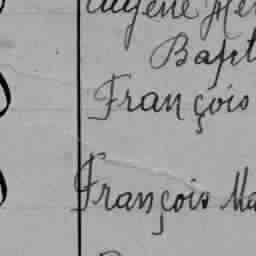 Eugène
Bapt
François
François Ma